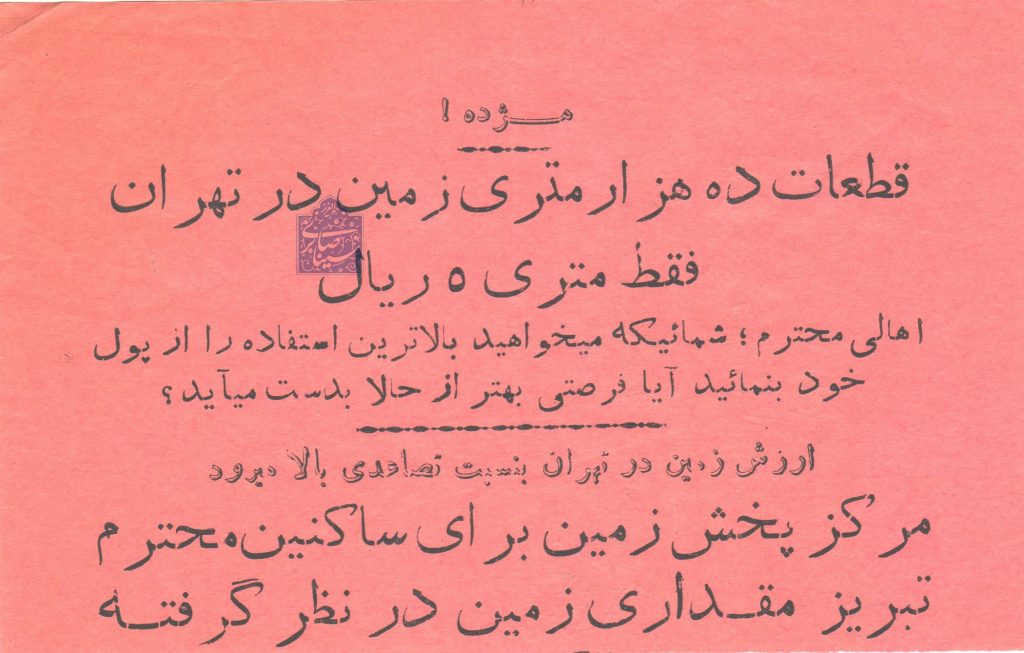 مژده !
قطعات ده هزار متری زمین در تهران
فقط متری ۵ ریال
اهالی محترم ؛ شمائیکه میخواهید بالاترین استفاده را از پول
خود بنمائید آیا فرصتی بهتر از حالا بدست میآید ؟
ارزش زمین در تهران بنسبت تصاعدی بالا میرود
مرکز پخش زمین برای ساکنین محترم
تبریز مقداری زمین در نظر گرفته